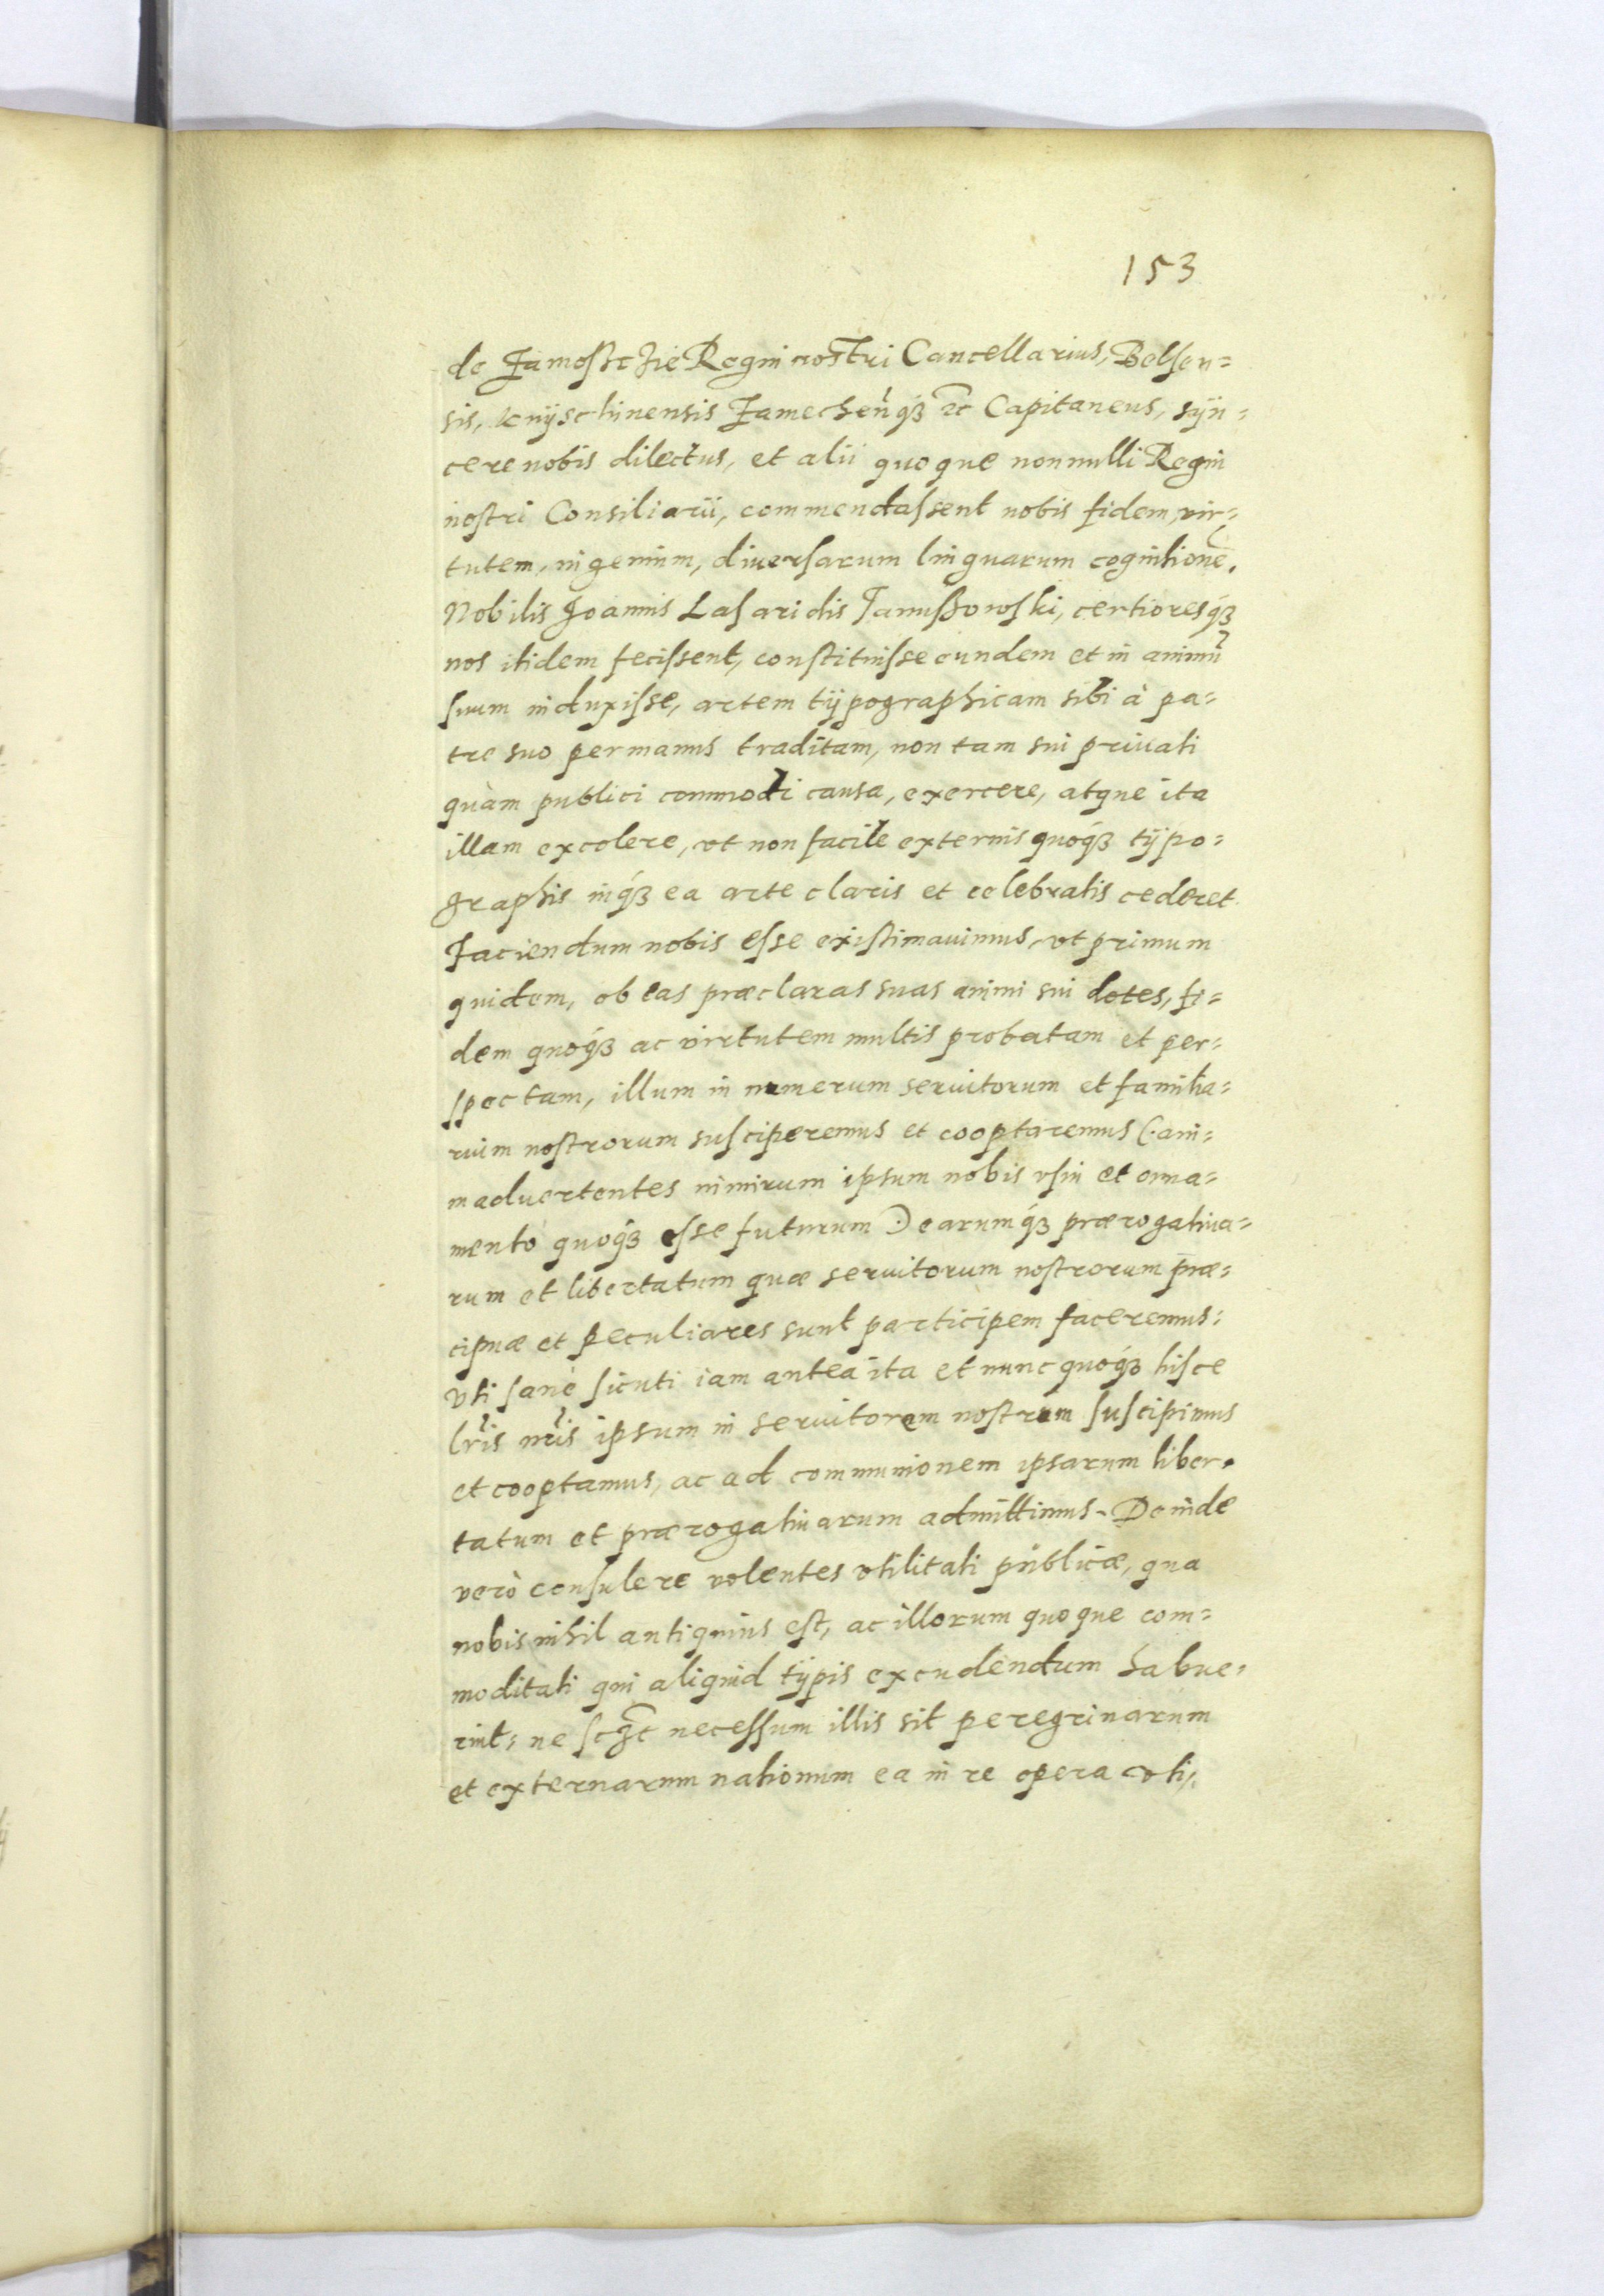 153
de Zamoßczie Regni nostri Cancellarius, Belsen=
sis, knÿschinensis Zamechen̄q́ꝫ ⁊c Capitaneus, sÿn=
cere nobis dilectus, et alii quoque nonnulli Regni
nostri Consiliarii, commendassent nobis fidem, vir=
tutem, ingenium, diuersarum linguarum cognitionē.
Nobilis Joannis Lasaridis Janußowski, certioresq́ꝫ
nos itidem fecissent, constituisse eundem et in animū
suum induxisse, artem tÿpographicam sibi à pa=
tre suo permanus traditam, non tam sui priuati
quàm publici commodi causa, exercere, atque ita
illam excolere, vt non facile externis quoq́ꝫ tÿpo=
graphis inq́ꝫ ea arte claris et celebratis cederet
Faciendum nobis esse existimauimus, vt primum
quidem, ob eas præclaras suas animi sui dotes, fi=
dem quoq́ꝫ ac virtutem multis probatam et per=
spectam, illum in numerum seruitorum et familia=
rium nostrorum susciperemus et cooptaremus (.ani=
maduertentes nimirum ipsum nobis vsui et orna=
mento quoq́ꝫ esse futurum.) earumq́ꝫ prærogatiua=
rum et libertatum quæ seruitorum nostrorum præ=
cipuæ et peculiares sunt participem faceremus:
Vti sanè sicuti iam antea ita et nunc quoq́ꝫ hisce
lr̄is nr̄is ipsum in seruitorem nostrum suscipimus
et cooptamus, ac ad communionem ipsarum liber=
tatum et prærogatiuarum admittimus. Deinde
verò consulere volentes vtilitati publicæ, qua
nobis nihil antiquius est, ac illorum quoque com=
moditati qui aliquid tÿpis excudendum habue=
rint, ne sc̄ꝫt necessum illis sit peregrinarum
et externarum nationum ea in re opera vti,